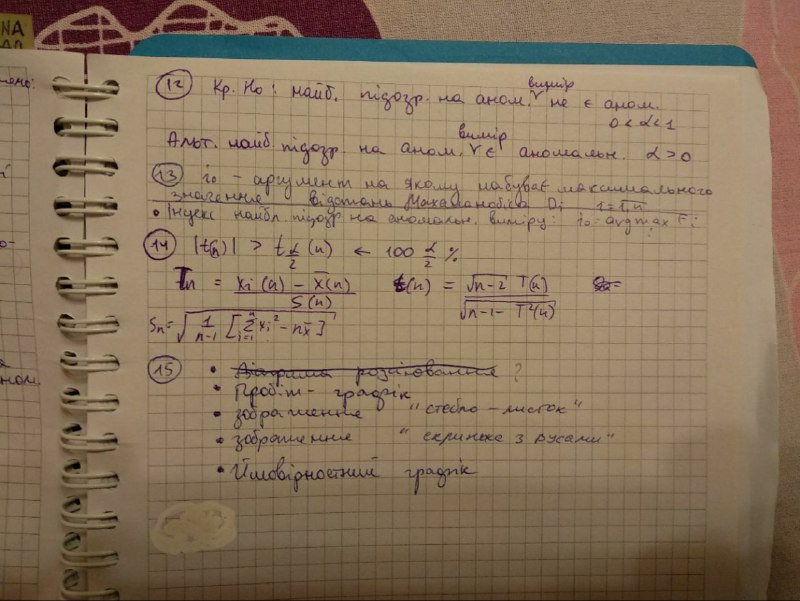 NA
вимір
12 Кр. H₀: найб. підозр. на аном. ∨ не є аном.
0 < α < 1
вимір
Альт. найб. підозр. на аном. ∨ є аномальн. α > 0
13 i₀ – аргумент на якому набуває максимального
значення відстань Махаланобіса Di i=1,n
• Індекс найбл. підозр. на аномальн. виміру: i₀ = argmax Fi
i
14 |t(n)| > t α/2 (n) ← 100 α/2 %
Tn = (xi(n) – x̄(n)) / S(n) t(n) = √(n-2) T(n) / √(n-1-T²(n))
Sn = √(1/(n-1) [Σ i=1 n xi² – nx̄])
15 • Діаграма розсіювання ?
• Пробіт – графік
• зображення "стебло – листок"
• зображення "скринька з вусами"
• Ймовірностний графік
ном.